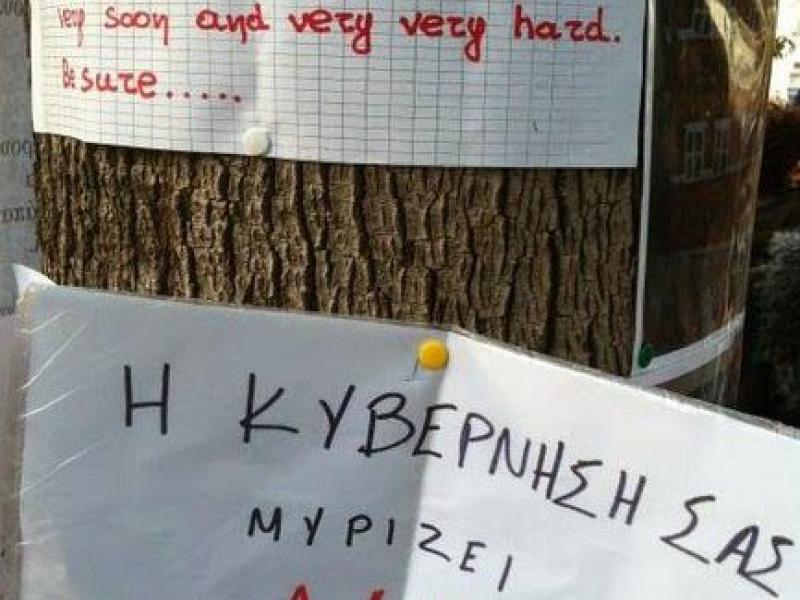 very soon and very very hard.
Be sure.....
Η ΚΥΒΕΡΝΗΣΗ ΣΑΣ
ΜΥΡΙΖΕΙ